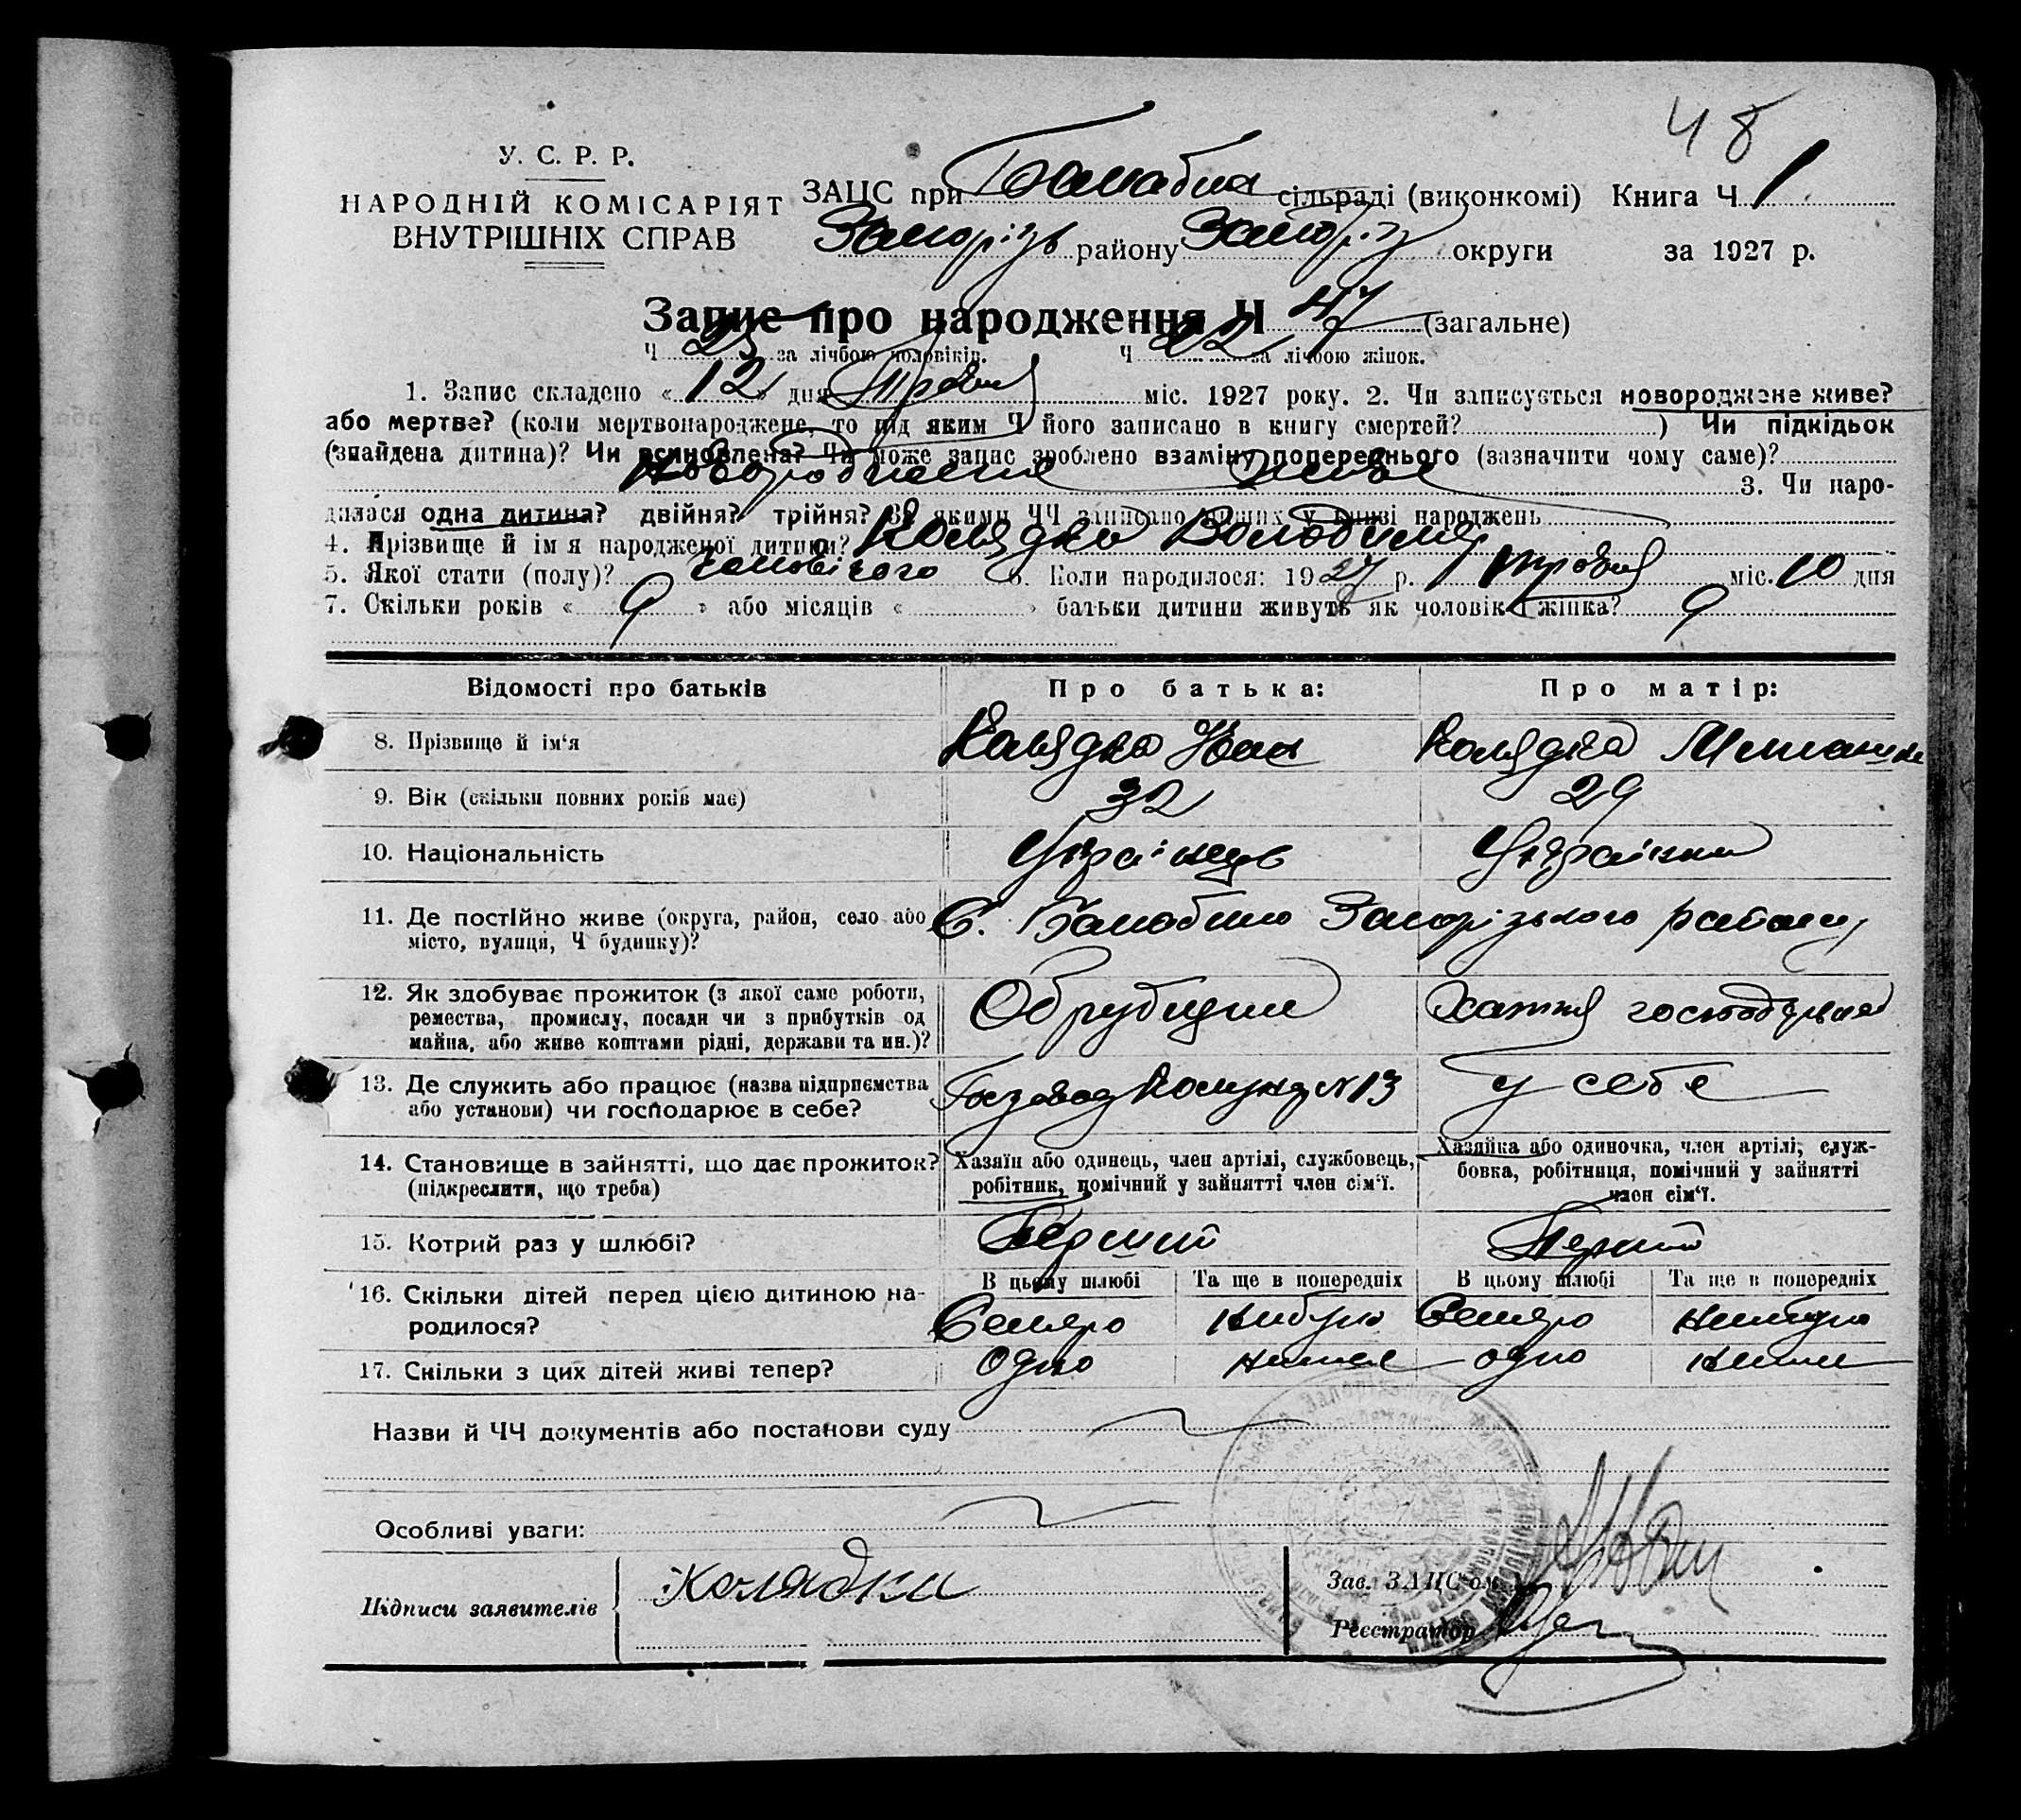 48
У. С. Р. Р.
НАРОДНІЙ КОМІСАРІЯТ
ВНУТРІШНІХ СПРАВ
ЗАЦС при Балабин сільраді (виконкомі) Книга Ч. 1
Запорізь району Запоріз округи за 1927 р.
Запис про народження Ч 47 (загальне)
Ч 25 за лічбою чоловіків. Ч 22 за лічбою жінок.
1. Запис складено « 12 » дня Травня міс. 1927 року. 2. Чи записується новороджене живе?
або мертве? (коли мертвонароджене, то під яким Ч його записано в книгу смертей? ) Чи підкідьок
(знайдена дитина)? Чи всиновлена? Чи може запис зроблено взамінь попереднього (зазначити чому саме)?
3. Чи наро-
дилася одна дитина? двійня? трійня? За якими ЧЧ записано інших у книзі народжень
4. Прізвище й ім я народженої дитини? Колядко Володимір
5. Якої стати (полу)? Чоловічого 6. Коли народилося: 1927 р. Травня міс. 10 дня
7. Скільки років « 9 » або місяців « » батьки дитини живуть як чоловік і жінка? 9
Відомості про батьків Про батька: Про матір:
8. Прізвище й ім‘я Колядко Іван Колядко
9. Вік (скільки повних років має) 32 29
10. Національність Українець Українка
11. Де постійно живе (округа, район, село або С. Балабино Запорізького району
місто, вулиця, Ч будинку)?
12. Як здобуває прожиток (з якої саме роботи, Обрубщик Хатня господарка
ремества, промислу, посади чи з прибутків од
майна, або живе коштами рідні, держави та ин.)?
13. Де служить або працює (назва підприємства Комунар N 13 у себе
або установи) чи господарює в себе?
14. Становище в зайнятті, що дає прожиток? Хазяїн або одинець, член артілі, службовець, Хазяйка або одиночка, член артілі, служ-
(підкреслити, що треба) робітник, помічний у зайнятті член сім‘ї. бовка, робітниця, помічний у зайнятті
член сім‘ї.
15. Котрий раз у шлюбі? Перший Перший
В цьому шлюбі Та ще в попередніх В цьому шлюбі Та ще в попередніх
16. Скільки дітей перед цією дитиною на- Семеро небуло Семеро небуло
родилося?
17. Скільки з цих дітей живі тепер? одно немає одно
Назви й ЧЧ документів або постанови суду
Особливі уваги:
Підписи заявителів Колядки
Зав. ЗАЦС‘ом
Реєстратор